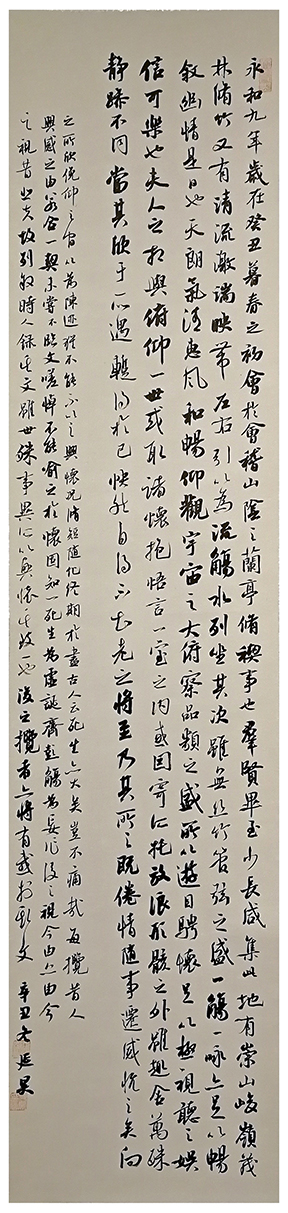 永和九年歲在癸丑暮春之初會於會稽山陰之蘭亭脩禊事也羣賢畢至少長咸集此地有崇山峻嶺茂
林脩竹又有清流激湍映帶左右引以為流觴曲水列坐其次雖無絲竹管弦之盛一觴一詠亦足以暢
敘幽情是日也天朗氣清惠風和暢仰觀宇宙之大俯察品類之盛所以遊目騁懷足以極視聽之娛
信可樂也夫人之相與俯仰一世或取諸懷抱悟言一室之內或因寄所託放浪形骸之外雖趣舍萬殊
靜躁不同當其欣于所遇暫得於己快然自得不知老之將至及其所之既倦情隨事遷感慨係之矣向
之所欣俛仰之間以為陳迹猶不能不以之興懷況脩短隨化終期於盡古人云死生亦大矣豈不痛哉每攬昔人
興感之由若合一契未嘗不臨文嗟悼不能喻之於懷固知一死生為虛誕齊彭殤為妄作後之視今由今
之視昔悲夫故列敘時人錄其所述雖世殊事異所以興懷其致一也後之攬者亦將有感於斯文 辛丑